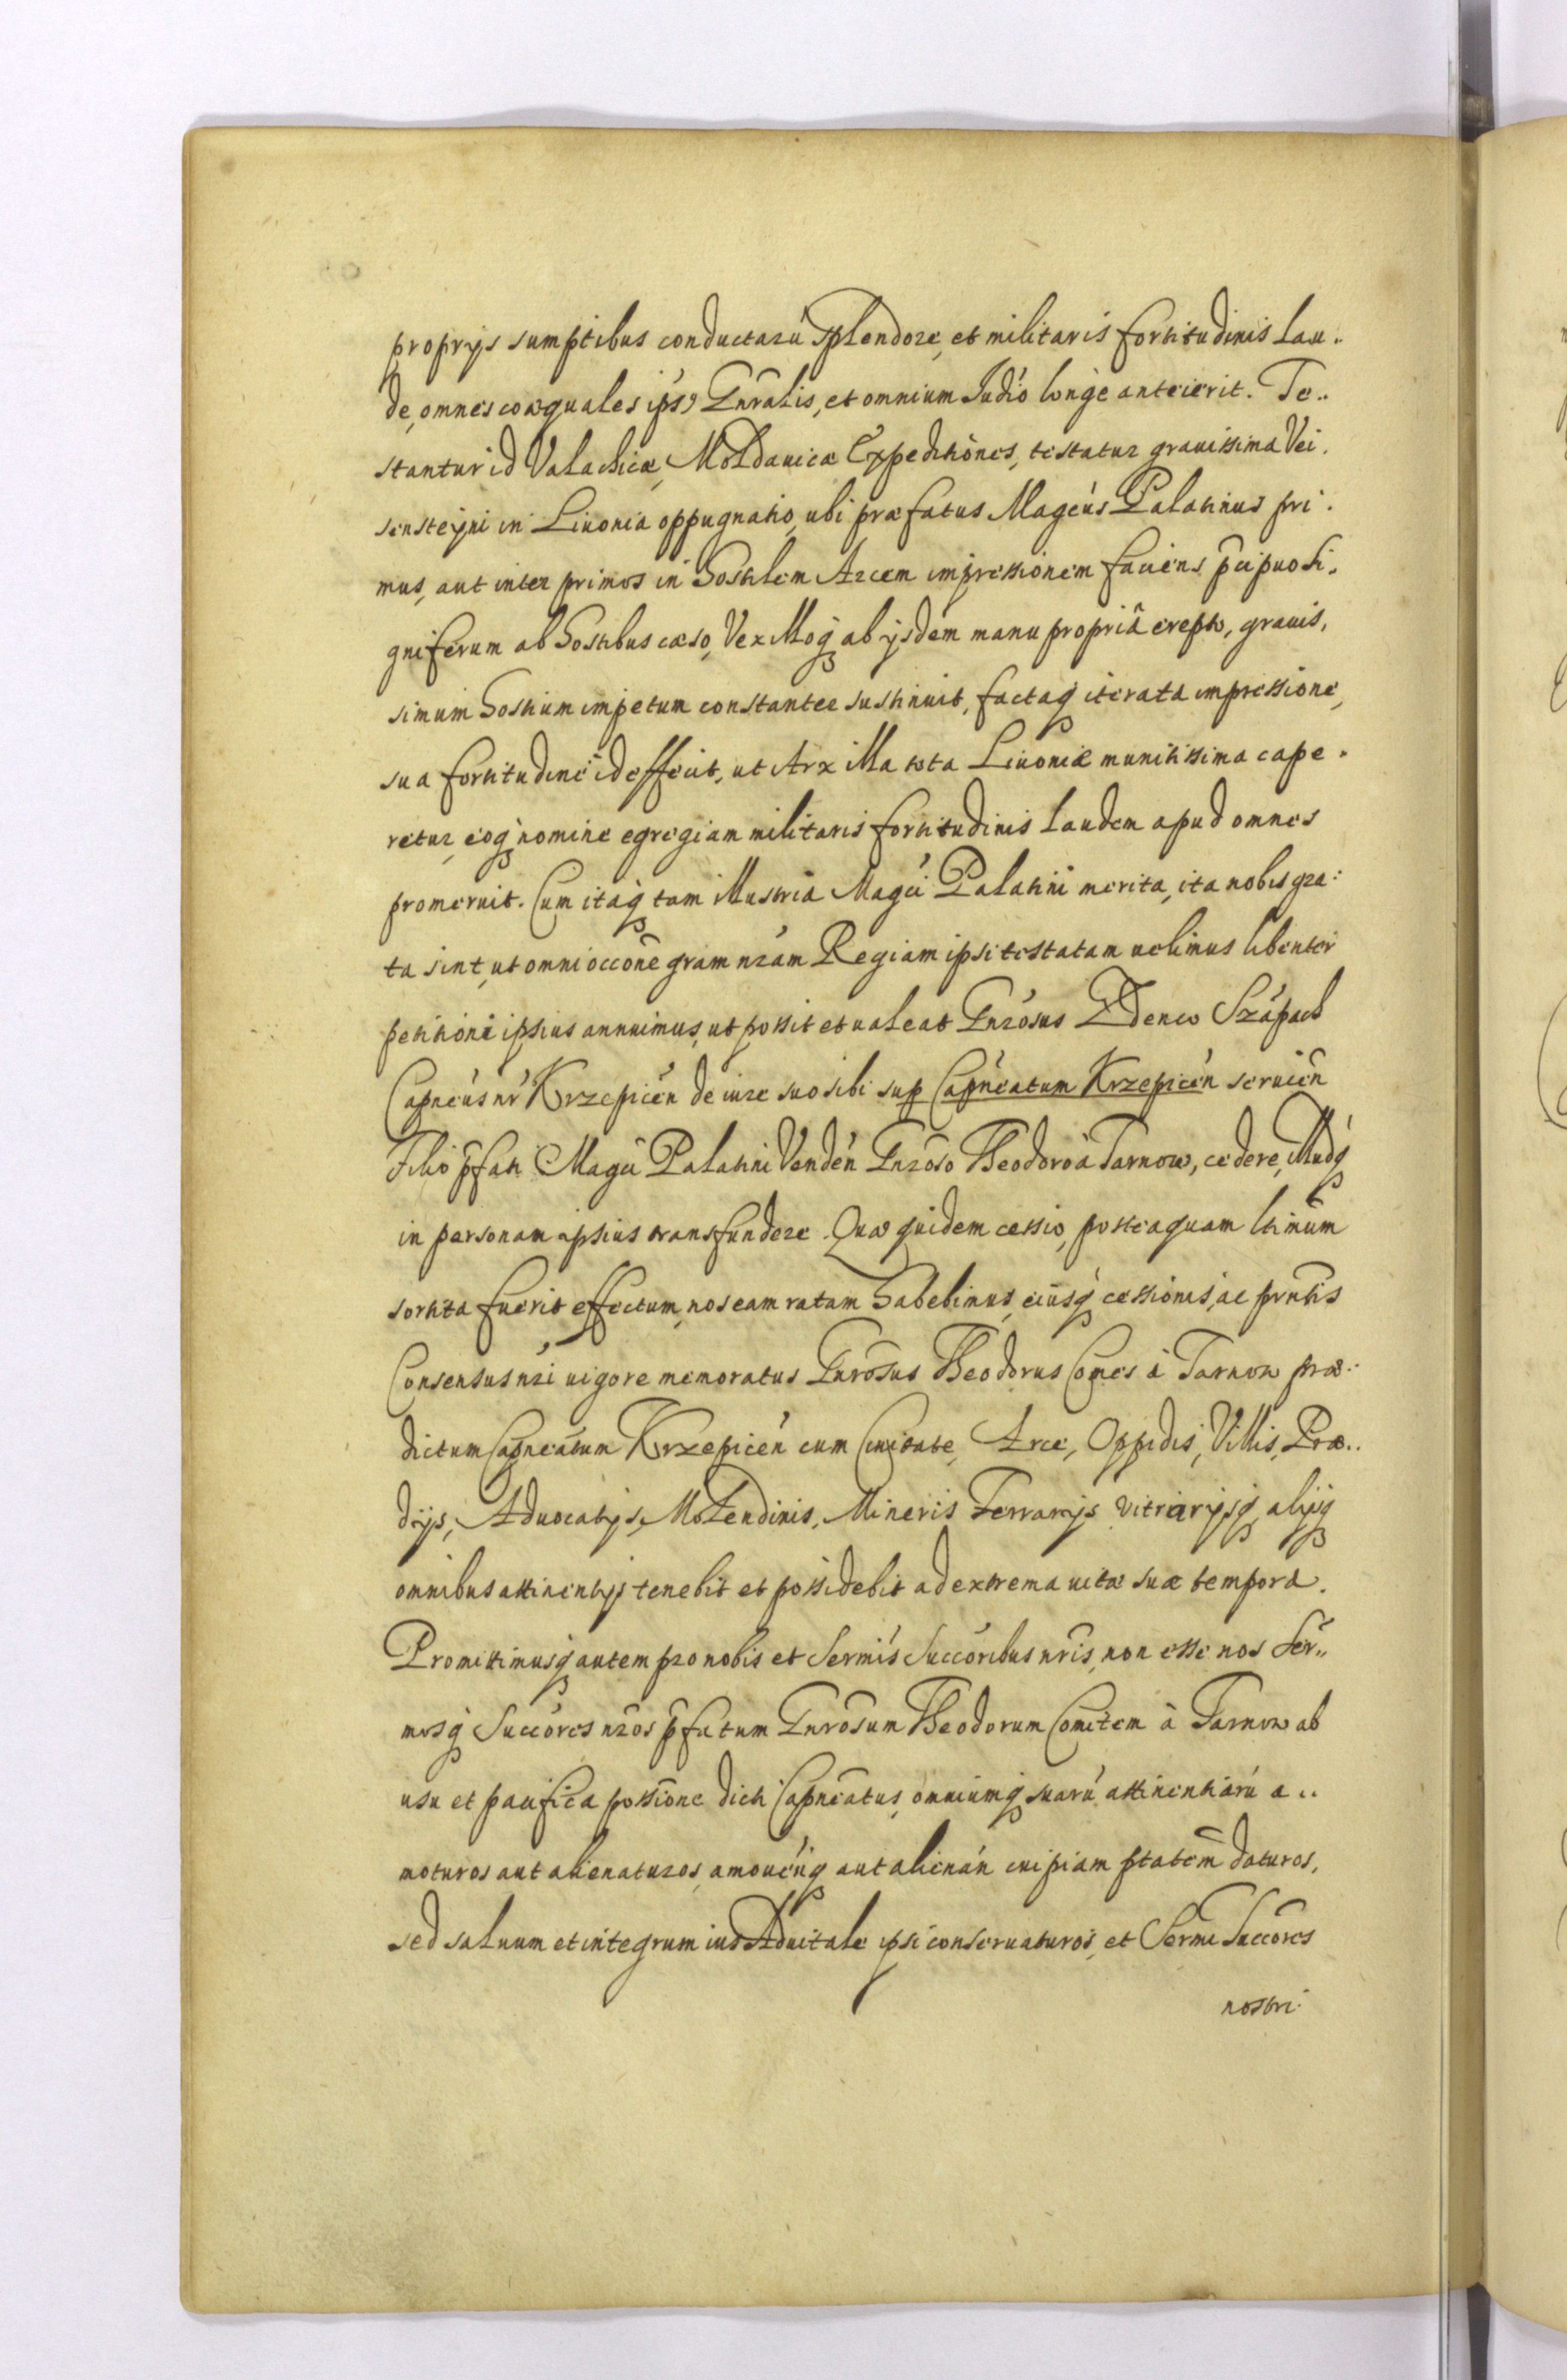 proprijs sumptibus conductarú splendore, et militaris fortitudinis lau..
de, omnes coæquales ipsꝰ Gnralis, et omnium Judió longe anteierit. Te..
stantur id Valachicæ, Moldauicæ Expeditiones, testatur grauissima Vei.
sensteyni in Liuonia oppugnatio, ubi præfatus Magcus Palatinus pri.
mus, aut inter primos in hostilem Arcem impressionem faciens pcipuo si.
gniferum ab hostibus cæso, Vexilloq ab ijsdem manu propriâ erepto, grauis,
simum hostium impetum constanter sustinuit, factaq iterata impressione,
sua fortitudine id effecit, ut Arx illa tota Liuoniæ munitissima cape.
retur, eoq nomine egregiam militaris fortitudinis laudem apud omnes
promeruit. Cum itaq tam illustria Magci Palatini merita, ita nobis gra:
ta sint, ut omni occone gram nram Regiam ipsi testatam uelimus libenter
petitioni ipsius annuimus, ut possit et ualeat Gnrosus Zdenco Szápach
Capneus nr Krzepicen de iure suo sibi sup Capneatum Krzepicen seruien
Filio pfati Magci Palatini Venden Gnroso Theodoro à Tarnow, cedere, illudq
in personam ipsius transfundere. Quæ quidem cessio, posteaquam ltimum
sortita fuerit effectum, nos eam ratam habebimus, eiusq cessionis, ac prntis
Consensus nri uigore memoratus Gnrosus Theodorus Comes à Tarnow præ:
dictum Capneatum Krzepicen cum Ciuitate, Arce, Oppidis, Villis, Præ..
dijs, Aduocatijs, Molendinis, Mineris Ferrarijs vitriarijsq, alijsq
omnibus attinentijs tenebit et possidebit ad extrema uitæ suæ tempora.
Promittimusq autem pro nobis et Sermis Succoribus nris, non esse nos Ser..
mosq Succores nros pfatum Gnrosum Theodorum Comitem à Tarnow ab
usu et pacifica possione dicti Capneatus, omniumq suarú attinentiarú a..
moturos aut alienaturos, amouenq aut alienán cuipiam ptatem daturos,
sed saluum et integrum ius Aduitale ipsi conseruaturos, et Sermi Succores
nostri